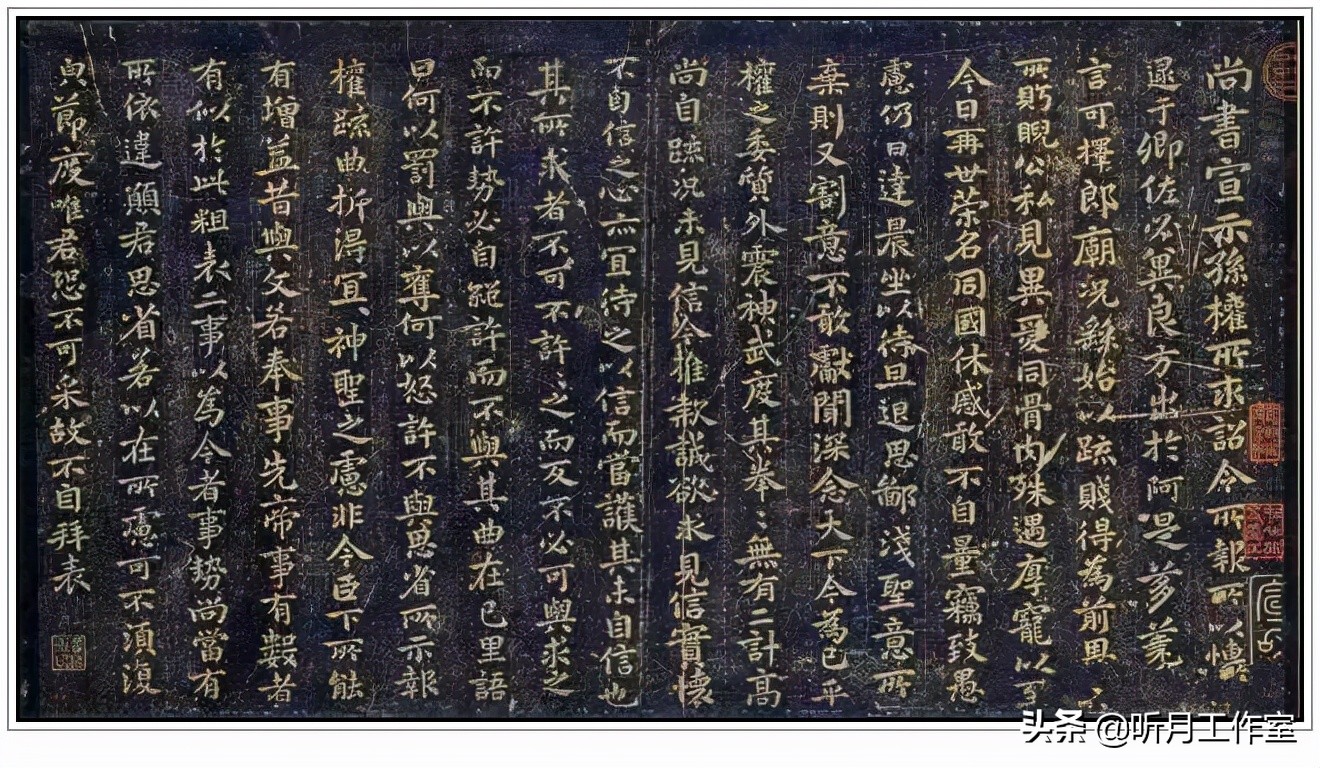 尚書宣示孫權所求詔令所報所以博
逮于卿佐必冀良方出於阿是芻蕘
言可擇郎廟況繇始以疏賤得為前恩
所眄睨公私見異愛同骨肉殊遇厚寵以至
今日再世榮名同國休慼敢不自量竊致愚
慮仍日達晨坐以待旦退思鄙淺聖意所
棄則又割意不敢獻聞深念天下今為已平
權之委質外震神武度其拳〻無有二計高
尚自疏況未見信今推款誠欲求見信實懷
不自信之心亦宜待之以信而當護其未自信也
其所求者不可不許許之而反不必可與求之
而不許勢必自絕許而不與其曲在己里語
曰何以罰與以奪何以怒許不與思省所示報
權疏曲折得宜宜神聖之慮非今臣下所能
有增益昔與文若奉事先帝事有數者
有似於此粗表二事以為今者事勢尚當有
所依違願君思省若以在所慮可不須復
與節度唯君恐不可采故不自拜表
头条 @听月工作室